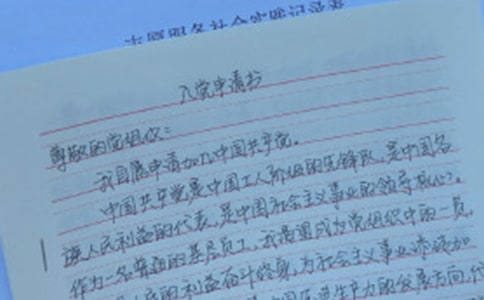 志愿服务社会实践记录表
入党申请书
尊敬的党组织：
我自愿申请加入中国共产党。
中国共产党是中国工人阶级的先锋队，是中国各
族人民利益的代表，是中国社会主义事业的领导核心。
作为一名普通的基层员工，我渴望成为党组织中的一员，
民的利益奋斗终身，为社会主义事业添砖加
生产力的发展方向，代